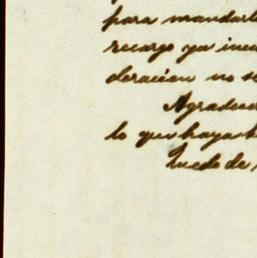 para mandarl
recargo ya inc
deracion no s
Agradec
lo que haya h
Quedo de